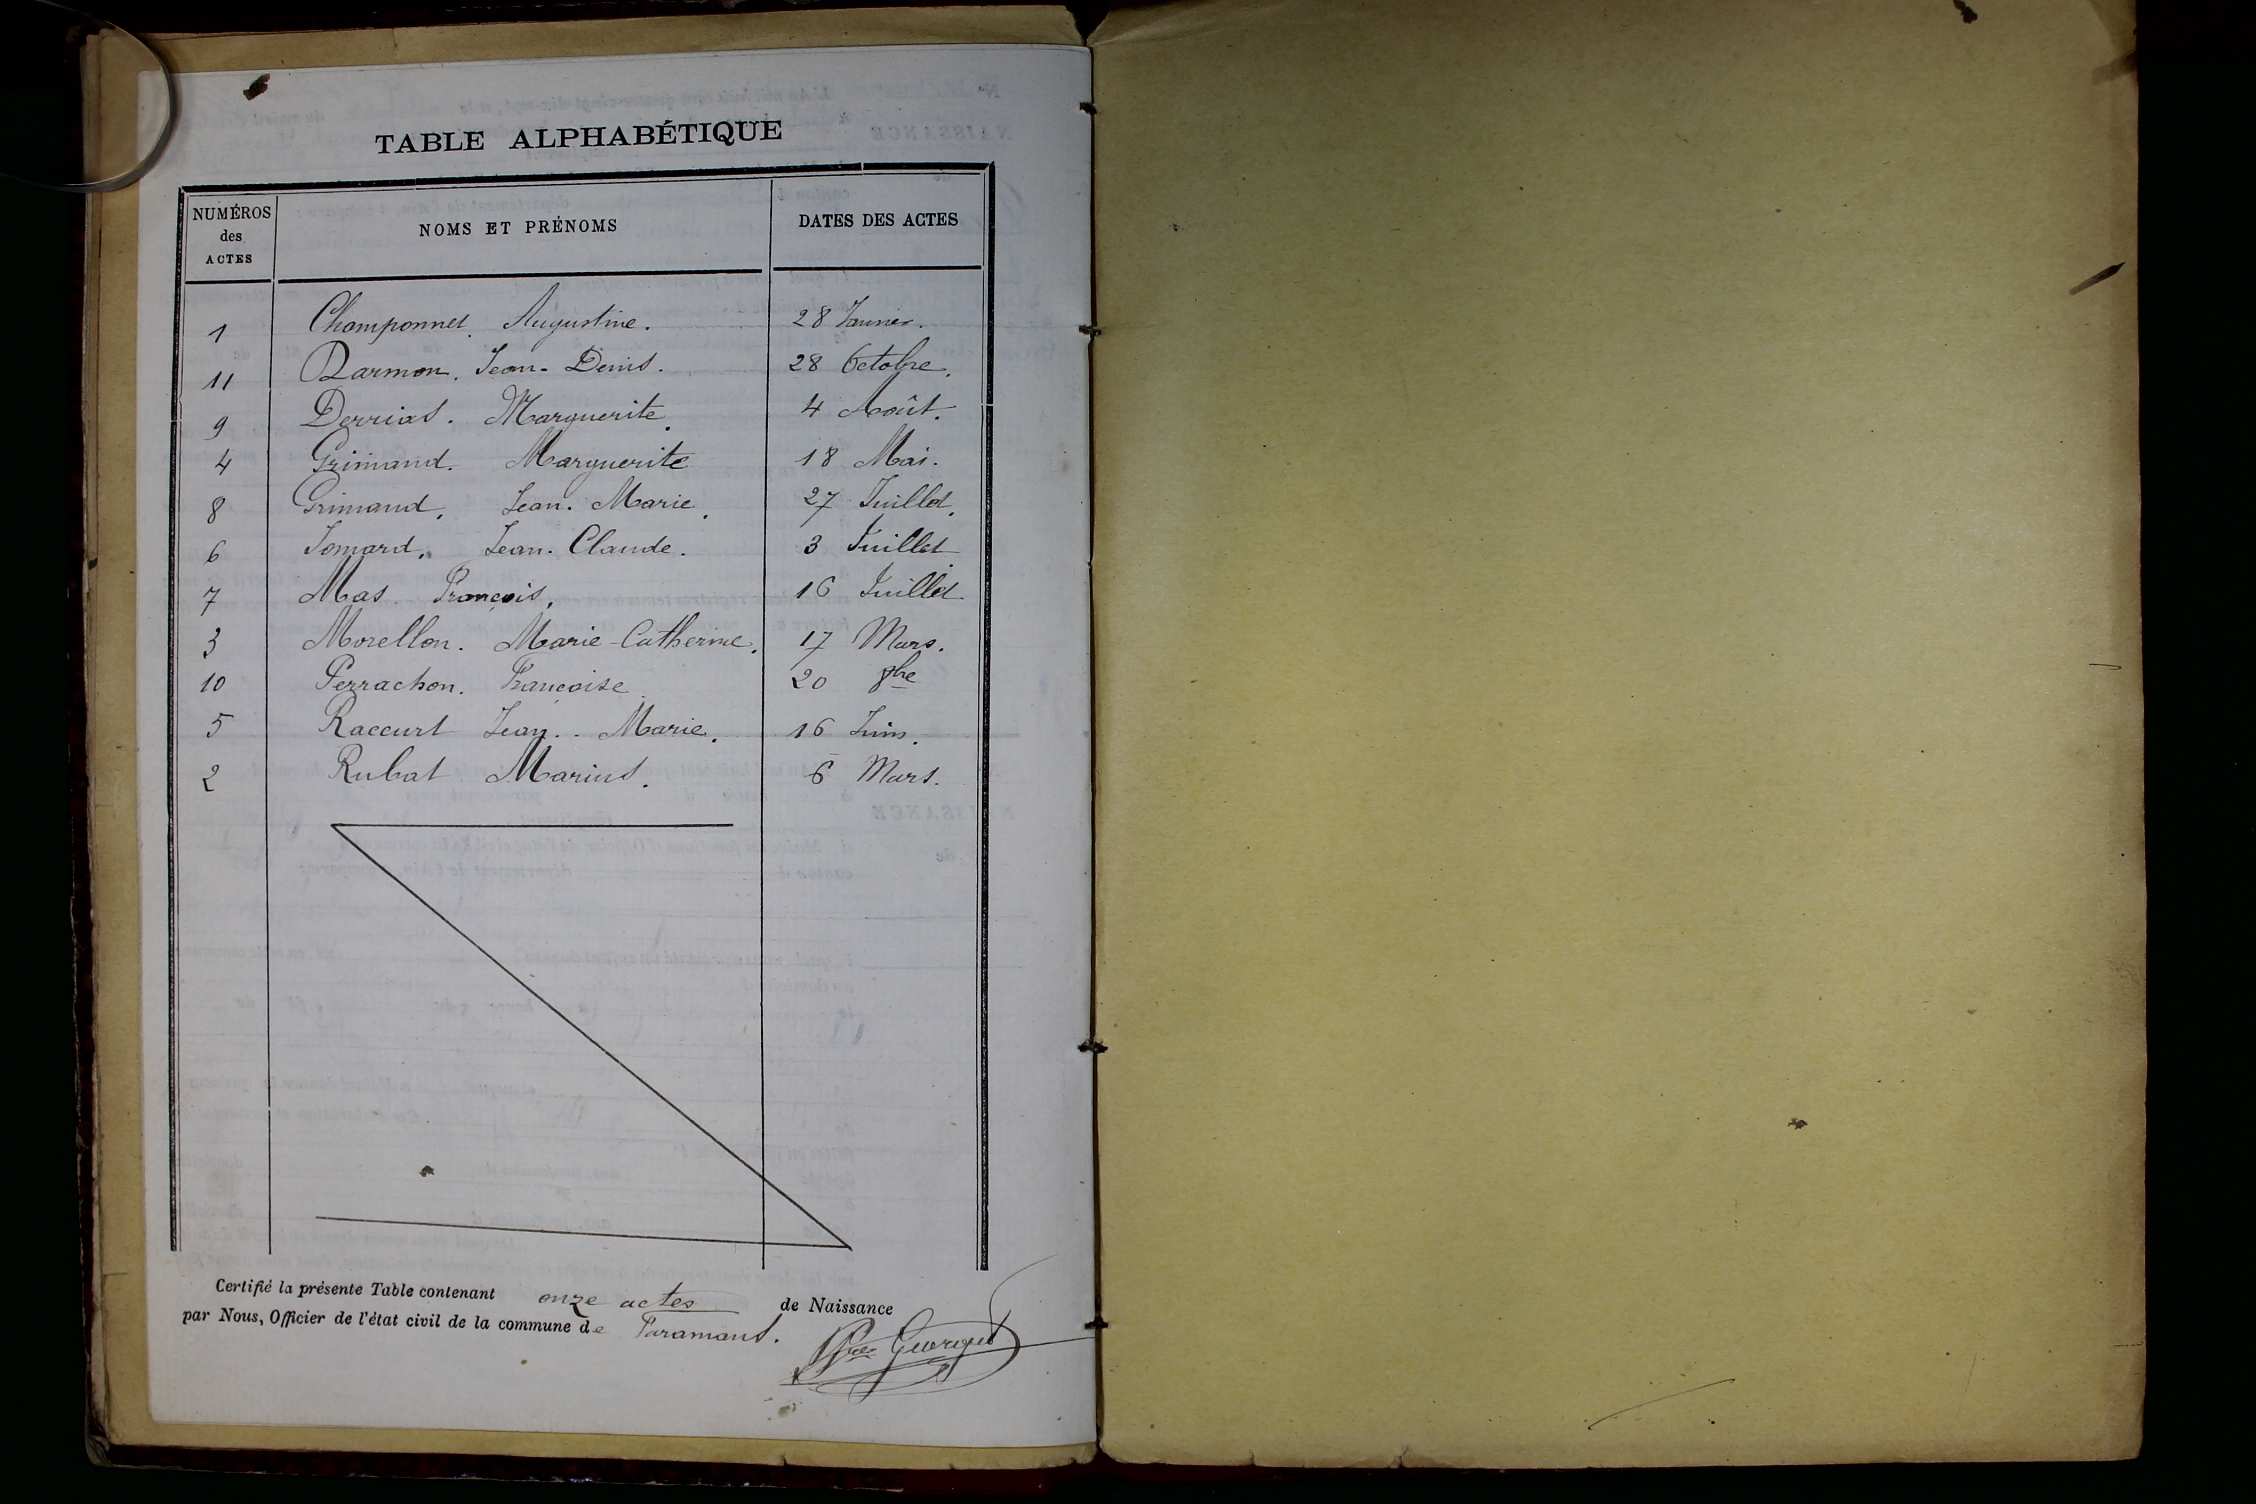 TABLE ALPHABÉTIQUE
NUMÉROS des ACTES
NOMS ET PRÉNOMS
DATES DES ACTES
1 Champonnet. Augustine. 28 Janvier.
11 Darmon. Jean-Denis. 28 Octobre.
9 Derrias. Marguerite. 4 Août.
4 Grimand. Marguerite 18 Mai.
8 Grimand. Jean. Marie. 27 Juillet.
6 Jomard. Jean-Claude. 3 Juillet
7 Mas François. 16 Juillet.
3 Morellon. Marie-Catherine. 17 Mars.
10 Perrachon. Françoise 20 8bre
5 Raccurt Jean. Marie. 16 Juin.
2 Rubat Marius. 6 Mars.
Certifié la présente Table contenant onze actes de Naissance
par Nous, Officier de l'état civil de la commune de Paramans.